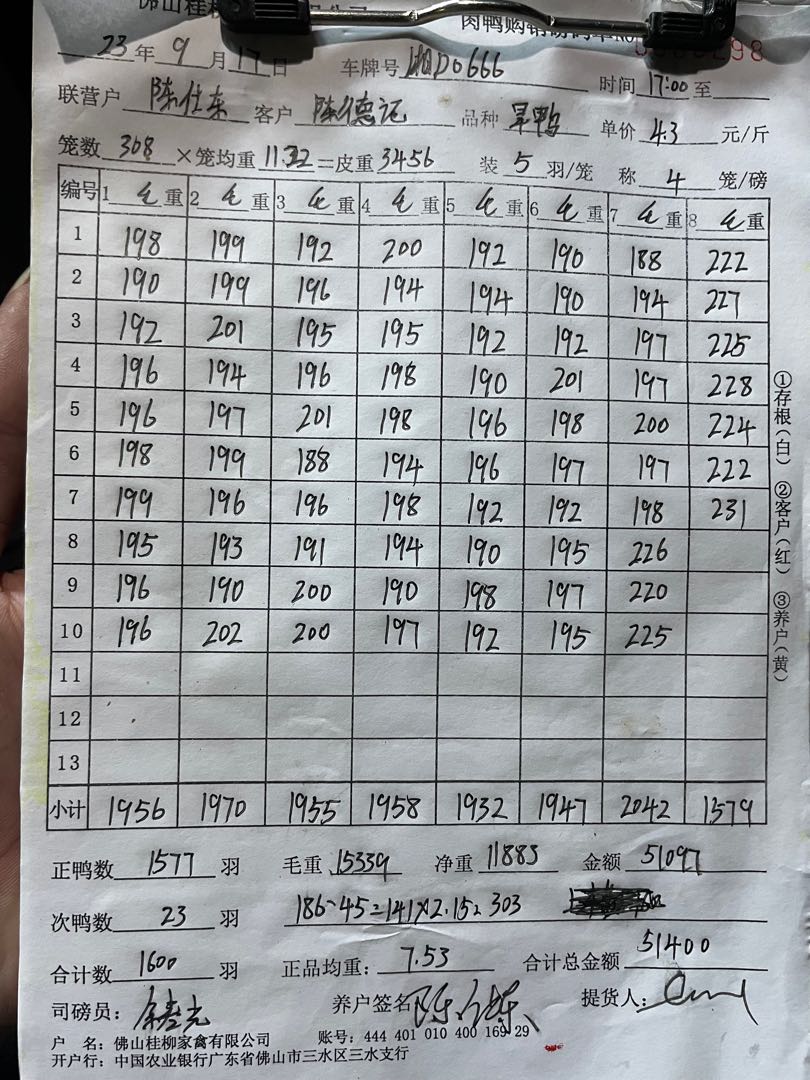 佛山桂柳
肉鸭购销磅码单NO
23年9月17日 车牌号 湘D0666 时间 17:00 至
联营户 陈仕东 客户 陈德记 品种 旱鸭 单价 4.3 元/斤
笼数 308 ×笼均重 11.22 =皮重 3456 装 5 羽/笼 称 4 笼/磅
编号 1 毛重 2 毛重 3 毛重 4 毛重 5 毛重 6 毛重 7 毛重 8 毛重
1 198 199 192 200 192 190 188 222
2 190 199 196 194 194 190 194 227
3 192 201 195 195 192 192 197 225
4 196 194 196 198 190 201 197 228
5 196 197 201 198 196 198 200 224
6 198 199 188 194 196 197 197 222
7 199 196 196 198 192 192 198 231
8 195 193 191 194 190 195 226
9 196 190 200 190 198 197 220
10 196 202 200 197 192 195 225
11
12
13
小计 1956 1970 1955 1958 1932 1947 2042 1579
正鸭数 1577 羽 毛重 15339 净重 11883 金额 51097
次鸭数 23 羽 186-45=141×2.15=303
合计数 1600 羽 正品均重: 7.53 合计总金额 51400
司磅员: 养户签名 提货人:
户 名: 佛山桂柳家禽有限公司 账号: 444 401 010 400 169 29
开户行: 中国农业银行广东省佛山市三水区三水支行
①存根(白) ②客户(红) ③养户(黄)